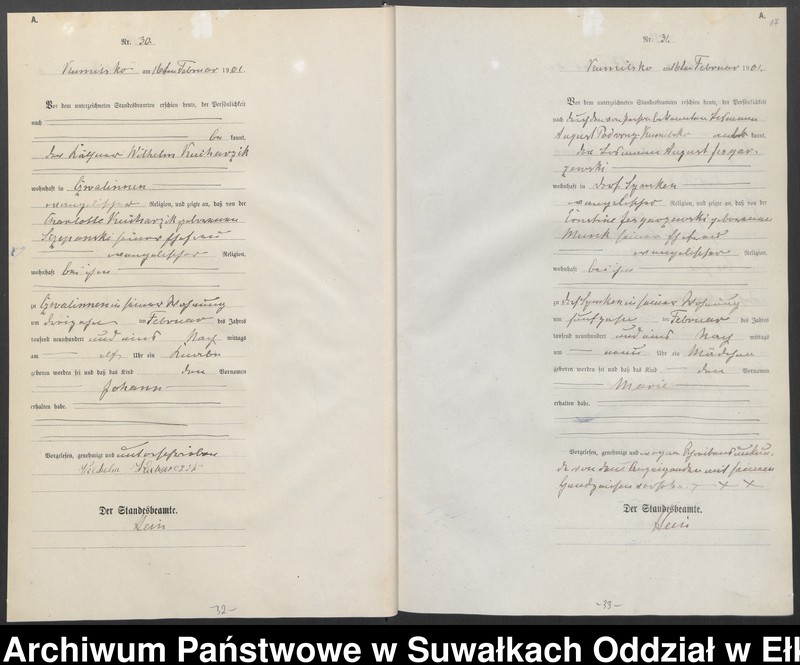 A.
Nr. 30.
Kumilsko am 16ten Februar 1901.
Vor dem unterzeichneten Standesbeamten erschien heute, der Persönlichkeit
nach
be kannt,
der Käthner Wilhelm Kucharzik
wohnhaft in Gwalinnen
evangelischer Religion, und zeigte an, daß von der
Charlotte Kucharzik geborenen
Sczepanski seiner Ehefrau
evangelischer Religion,
wohnhaft bei ihm
zu Gwalinnen in seiner Wohnung
am dreizehn ten Februar des Jahres
tausend neunhundert und eins Nach mittags
um elf Uhr ein Knabe
geboren worden sei und daß das Kind den Vornamen
Johann
erhalten habe.
Vorgelesen, genehmigt und unterschrieben
Wilhelm
Der Standesbeamte.
Hein
-32-
A.
17
Nr. 31.
Kumilsko am 16ten Februar 1901.
Vor dem unterzeichneten Standesbeamten erschien heute, der Persönlichkeit
nach durch den von Person bekannten Losmann
August Kumilsko kannt,
der Losmann August
wohnhaft in Dorf Symken
evangelischer Religion, und zeigte an, daß von der
geborenen
seiner Ehefrau
evangelischer Religion,
wohnhaft bei ihm
zu Dorf Symken in seiner Wohnung
am fünfzehn ten Februar des Jahres
tausend neunhundert und eins Nach mittags
um neun Uhr ein Mädchen
geboren worden sei und daß das Kind den Vornamen
Marie
erhalten habe.
Vorgelesen, genehmigt und wegen Schreibensunkun-
de von dem Anzeigenden mit seinem
Handzeichen versehen + + +
Der Standesbeamte.
Hein
-33-
Archiwum Państwowe w Suwałkach Oddział w Ełk